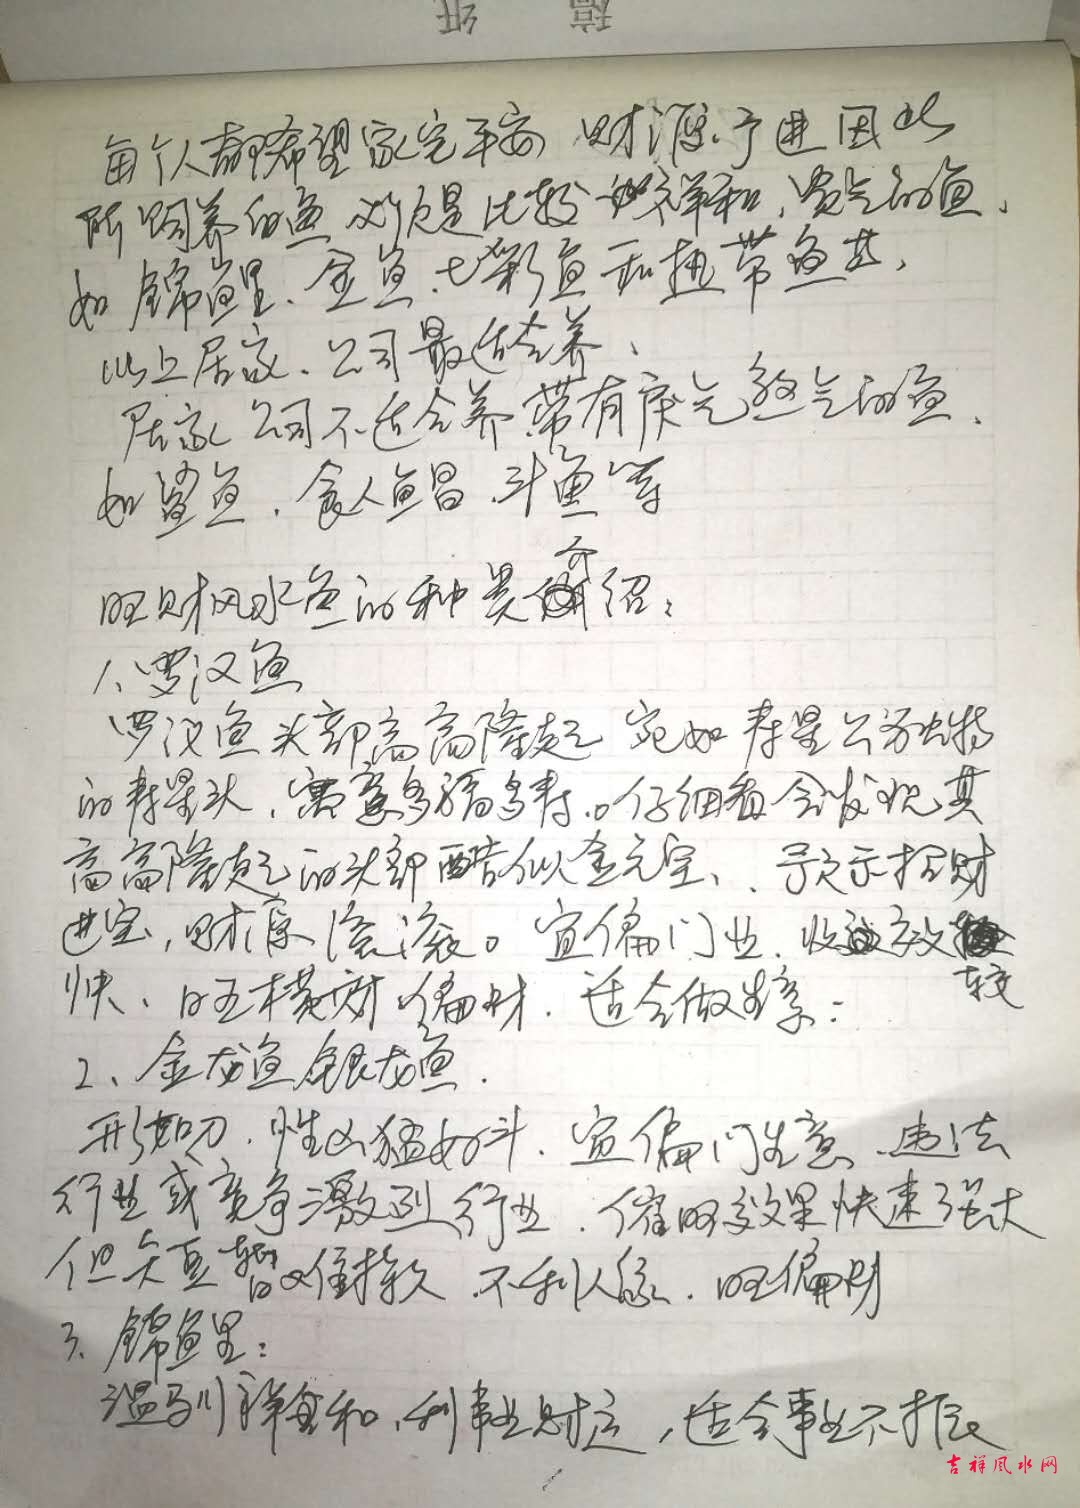 稿 纸
每个人都希望家宅平安 财源广进因此
所饲养的鱼必须是比较 祥和、贵气的鱼、
如锦鲤、金鱼、七彩鱼和热带鱼其、
以上居家、公司最适合养、
居家公司不适合养带有戾气煞气的鱼、
如鲨鱼、食人鱼昌、斗鱼等
旺财风水鱼的种类介绍：
1、罗汉鱼
罗汉鱼头部高高隆起 宛如寿星公独特
的寿星头、寓意多福多寿。仔细看会发现其
高高隆起的头部酷似金元宝、、预示招财
进宝，财源滚滚。宜偏门业、收效较
快、旺横财偏财、适合做生意：
2、金龙鱼银龙鱼.
形如刀、性凶猛好斗、宜偏门生意、违法
行业或竞争激烈行业、催旺效果快速强大
但 不利人缘、旺偏财
3、锦鲤：
温驯祥和，利事业财运，适合事业不振、
吉祥风水网